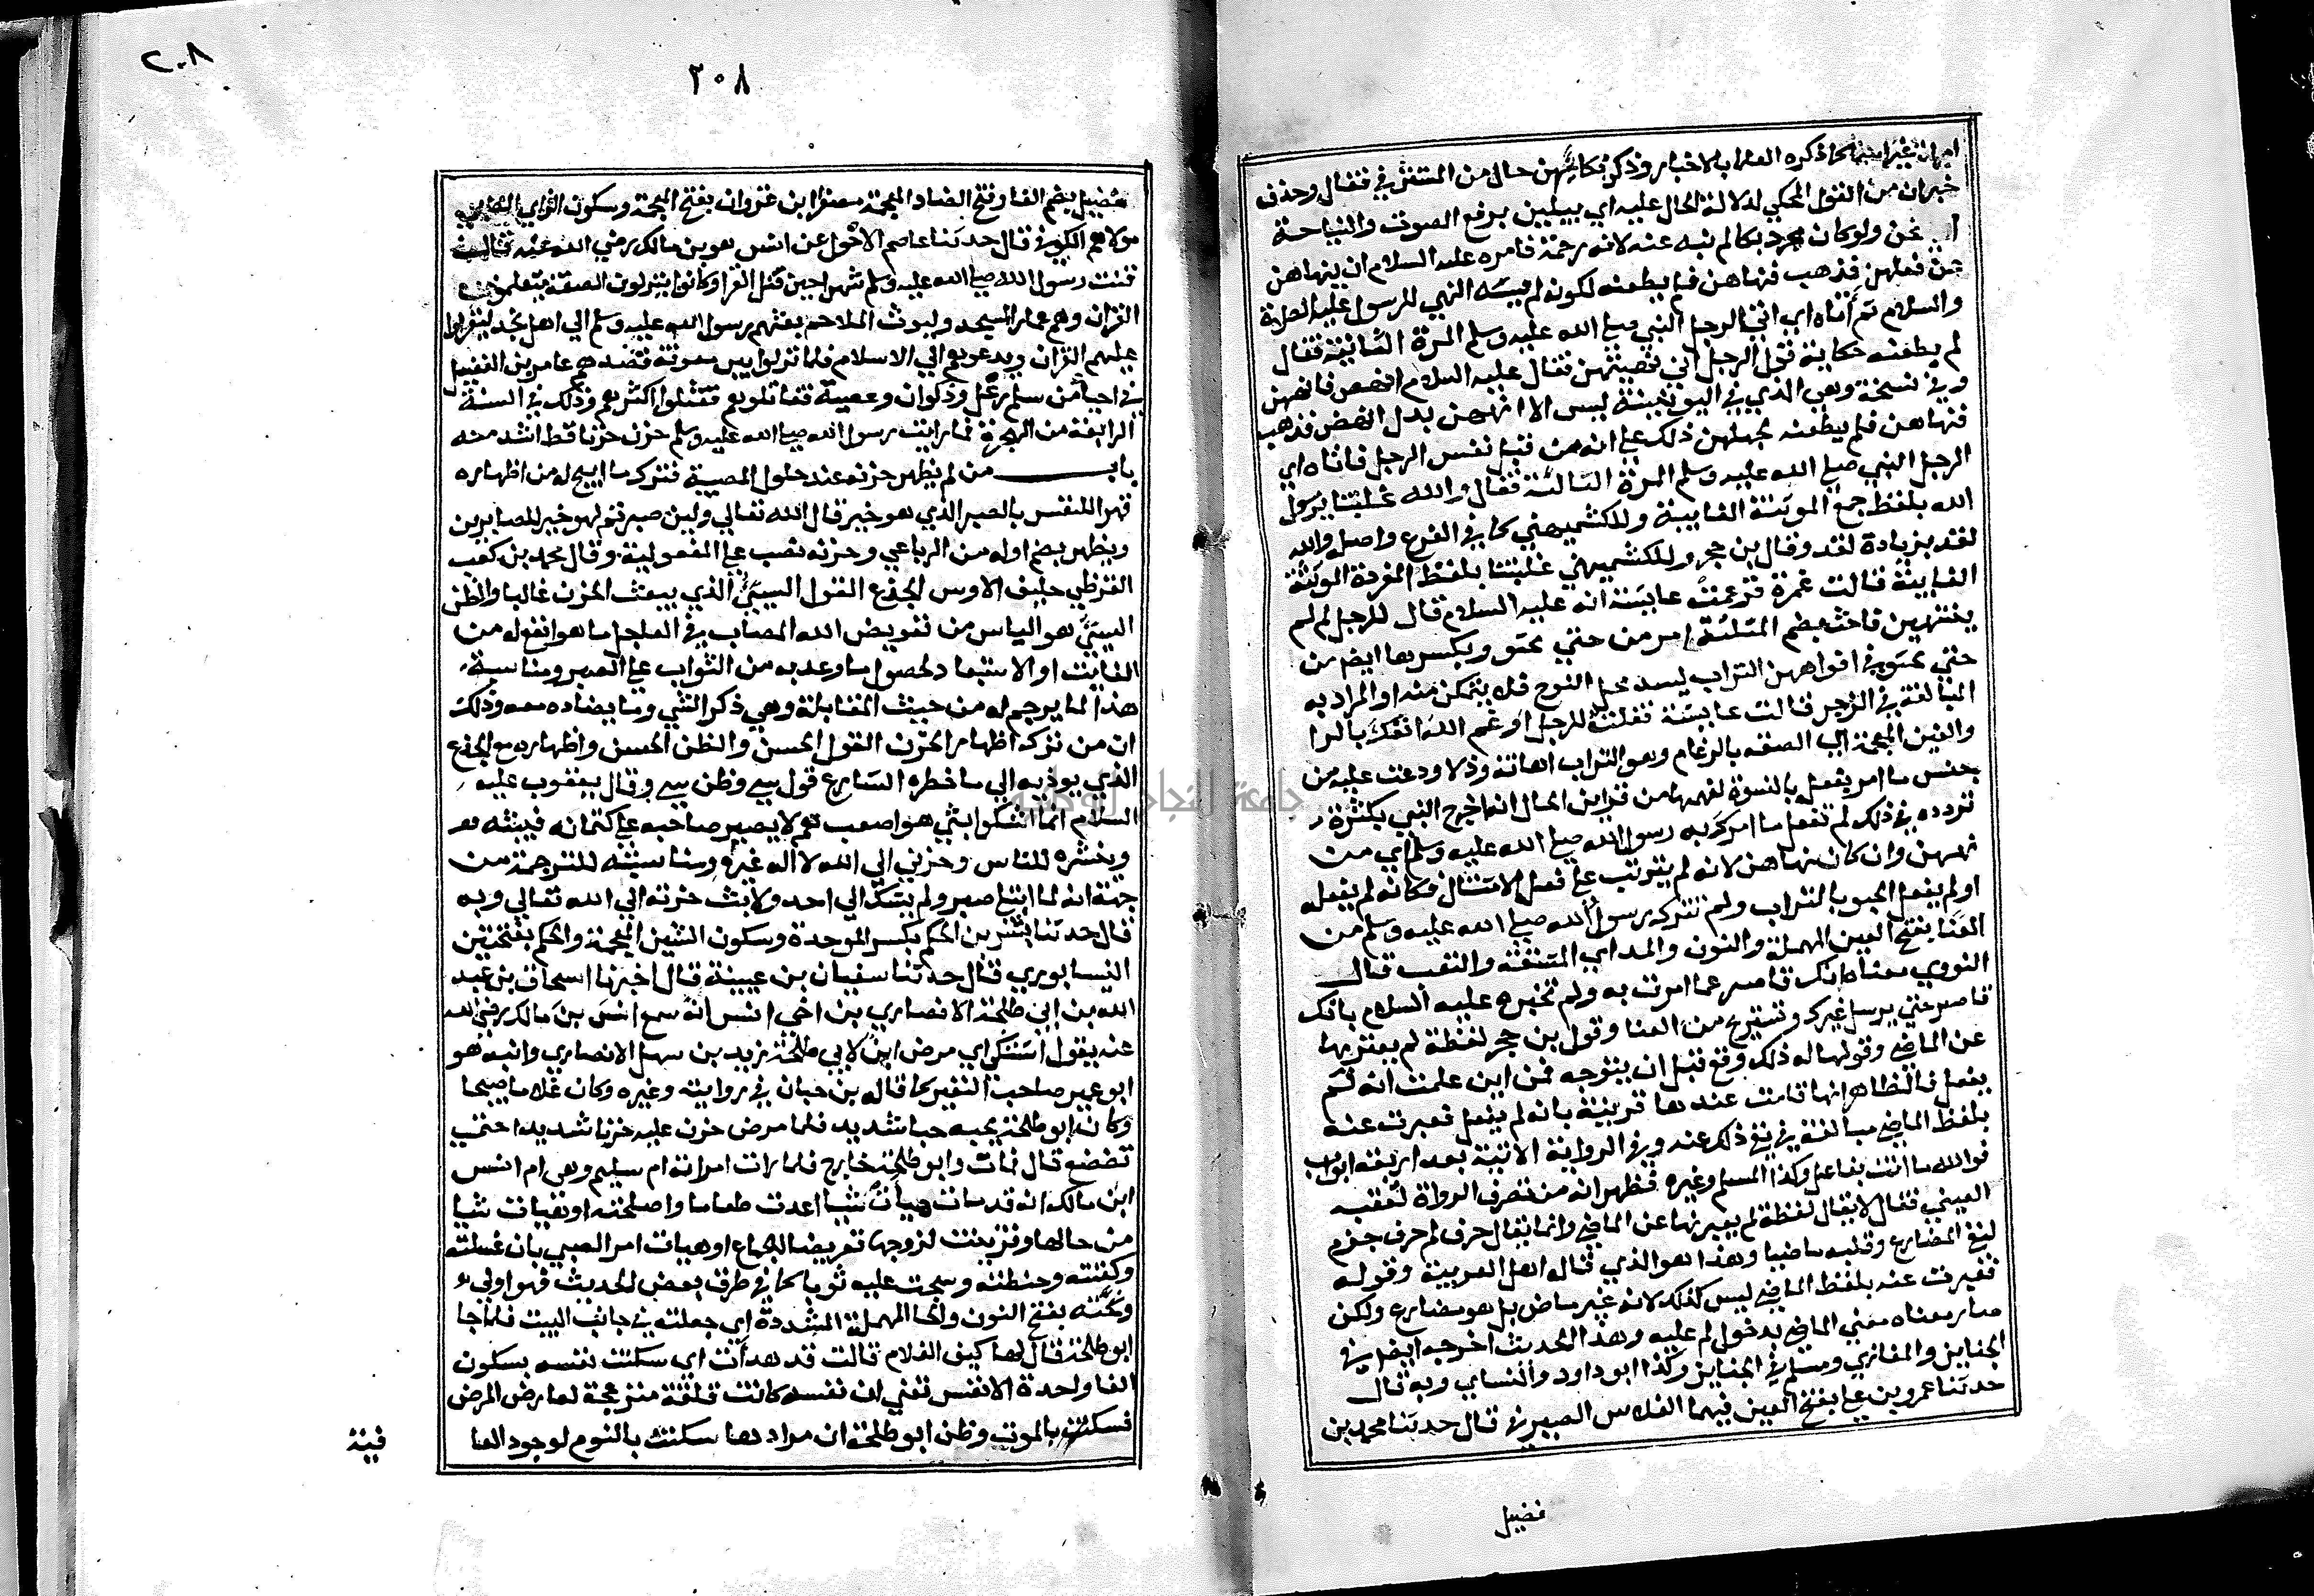 خبران من القول المحكي لدلالة الحال عليه اي يبكين برفع الصوت والنياحة
ولو كان مجرد بكا لم ينه عنه لانه رحمة فامره عليه السلام ان ينهاهن
عن فعلهن فذهب فنهاهن فلم يطعنه لكونه لم النهي للرسول عليه الصلاة
والسلام ثم أتاه اي اتى الرجل النبي صلى الله عليه وسلم المرة الثانية فقال
لم يطعنه حكاية قول الرجل اني نهيتهن فقال عليه السلام انهض فانههن
وفي نسخة وهي الذي في اليونينية ليس الا انههن بدل انهض فذهب
فنهاهن فلم يطعنه لحملهن ذلك على انه من قبل نفس الرجل فاتاه اي
الرجل النبي صلى الله عليه وسلم المرة الثالثة فقال والله غلبننا يرسول
الله بلفظ جمع المونثة الغايبة وللكشميهني كما في الفرع واصله والله
لقد بزيادة لقد وقال بن حجر وللكشميهني غلبتنا بلفظ المفردة المونثة
الغايبة قالت عمرة فزعمت عايشة انه عليه السلام قال للرجل لما لم
ينتهين فاحث بضم المثلثة امر من حثى يحثو وبكسرها ايضا من
حثى يحثي في افواههن التراب ليسد محل النوح فلا يتمكن منه او المراد به
المبالغة في الزجر قالت عايشة فقلت للرجل ارغم الله انفك بالرا
والغين المعجمة اي الصقه بالرغام وهو التراب اهانة وذلا ودعت عليه من
جنس ما امر بفعل بالنسوة لفهمها من قراين الحال انه احرج النبي بكثرة
تردده في ذلك لم تفعل ما امرك به رسول الله صلى الله عليه وسلم اي من
نهيهن وان كان نهاهن لانه لم يترتب على فعله الامتثال فكانه لم يفعله
او لم يفعل الحثو بالتراب ولم تترك رسول الله صلى الله عليه وسلم من
العنا بفتح العين المهملة والنون والمد اي المشقة والتعب قال
النووي معناه انك قاصر عما امرت به ولم تخبره عليه السلام بانك
قاصر حتى يرسل غيرك وتستريح من العنا وقول بن حجر لفظة لم يعبر بها
عن الماضي وقولها له ذلك وقع قبل ان يتوجه فمن اين علمت انه لم
يفعل فالظاهر انها قامت عندها قرينة بانه لم يفعل فعبرت عنه
بلفظ الماضي مبالغة في نفي ذلك عنه وفي الرواية الاتية بعد اربعة ابواب
فوالله ما انت بفاعل وكذا لمسلم وغيره فظهر انه من تصرف الرواة تعقبه
العيني فقال لا يقال لفظة لم يعبر بها عن الماضي وانما يقال حرف لم حرف جزم
لنفي المضارع وقلبه ماضيا وهذا هو الذي قاله اهل العربية وقوله
فعبرت عنه بلفظ الماضي ليس كذلك لانه غير ماض بل هو مضارع ولكن
صار معناه معنى الماضي بدخول لم عليه وهذا الحديث اخرجه ايضا في
الجنايز والمغازي ومسلم في الجنايز وكذا ابو داود والنساي وبه قال
حدثنا عمرو بن علي بفتح العين فيهما الفلاس الصيرفي قال حدثنا محمد بن
فضيل
٢٠٨
٢٠٨
فضيل بضم الفا وفتح الضاد المعجمة مصغرا ابن غزوان بفتح المعجمة وسكون الزاي
مولاهم الكوفي قال حدثنا عاصم الاحول عن انس هو بن مالك رضي الله عنه قال
قنت رسول الله صلى الله عليه وسلم شهرا حين قتل القرا وكانوا ينزلون الصفة يتعلمون
القران وهم عمار المسجد وليوث الملاحم بعثهم رسول الله عليه وسلم الي اهل نجد ليقراوا
عليهم القران ويدعوهم الي الاسلام فلما نزلوا بير معونة قصدهم عامر بن الطفيل
في احيا من سليم رعل وذكوان وعصية فقاتلوهم فقتلوا اكثرهم وذلك في السنة
الرابعة من الهجرة فما رايت رسول الله صلى الله عليه وسلم حزن حزنا قط اشد منه
باب من لم يظهر حزنه عند حلول المصيبة فترك ما ابيح له من اظهاره
قهرا للنفس بالصبر الذي هو خير قال الله تعالي ولين صبرتم لهو خير للصابرين
ويظهر بضم اوله من الرباعي وحزنه نصب على المفعولية وقال محمد بن كعب
القرظي حليف الاوس الجزع القول السيئ الذي يبعث الحزن غالبا والظن
السيئ هو الياس من تعويض الله المصاب في العاجل ما هو انفع له من
الفايت او الاستبعاد لحصول ما وعد به من الثواب على الصبر ومناسبة
هذا لما يرجم له من حيث المقابلة وهي ذكر الشي وما يضاده معه وذلك
ان من ترك اظهار الحزن القول الحسن والظن الحسن واظهاره مع الجزع
الذي يوديه الي ما حظره الشارع قول سي وظن سي وقال يعقوب عليه
السلام انما اشكوا بثي هو اصعب هم لا يصبر صاحبه على كتمانه فيبثه
وينشره للناس وحزني الى الله لا اله غيره ومناسبته للترجمة من
جهة انه لما ابتلي صبر ولم يشك الي احد ولا بث حزنه الي الله تعالي وبه
قال حدثنا بشر بن الحكم بكسر الموحدة وسكون الشين المعجمة والحكم بفتحتين
النيسابوري قال حدثنا سفيان بن عيينة قال اخبرنا اسحاق بن عبد
الله بن ابي طلحة الانصاري بن اخي انس انه سمع انس بن مالك رضي الله
عنه يقول اشتكى اي مرض ابن لابي طلحة زيد بن سهل الانصاري وابنه هو
ابو عمير صاحب النغير كما قاله بن حبان في روايته وغيره وكان غلاما صبيحا
وكان ابو طلحة يحبه حبا شديدا فلما مرض حزن عليه حزنا شديدا حتى
تضعضع قال فمات وابو طلحة خارج فلما رات امراته ام سليم وهي ام انس
ابن مالك انه قد مات هيات شيا اعدت طعاما واصلحته او هيات شيا
من حالها وتزينت لزوجها تعريضا للجماع او هيات امر الصبي بان غسلته
وكفنته وحنطته وسجت عليه ثوبا كما في طرق بعض الحديث فهو اولي
ونحته بفتح النون والحا المهملة المشددة اي جعلته في جانب البيت فلما جا
ابو طلحة قال لها كيف الغلام قالت قد هدات اي سكنت نفسه بسكون
الفا واحدة الانفس تعني ان نفسه كانت قلقة منزعجة لعارض المرض
فسكنت بالموت وظن ابو طلحة ان مرادها سكنت بالنوم لوجود العا
فية
جامعة النجاح الوطنية